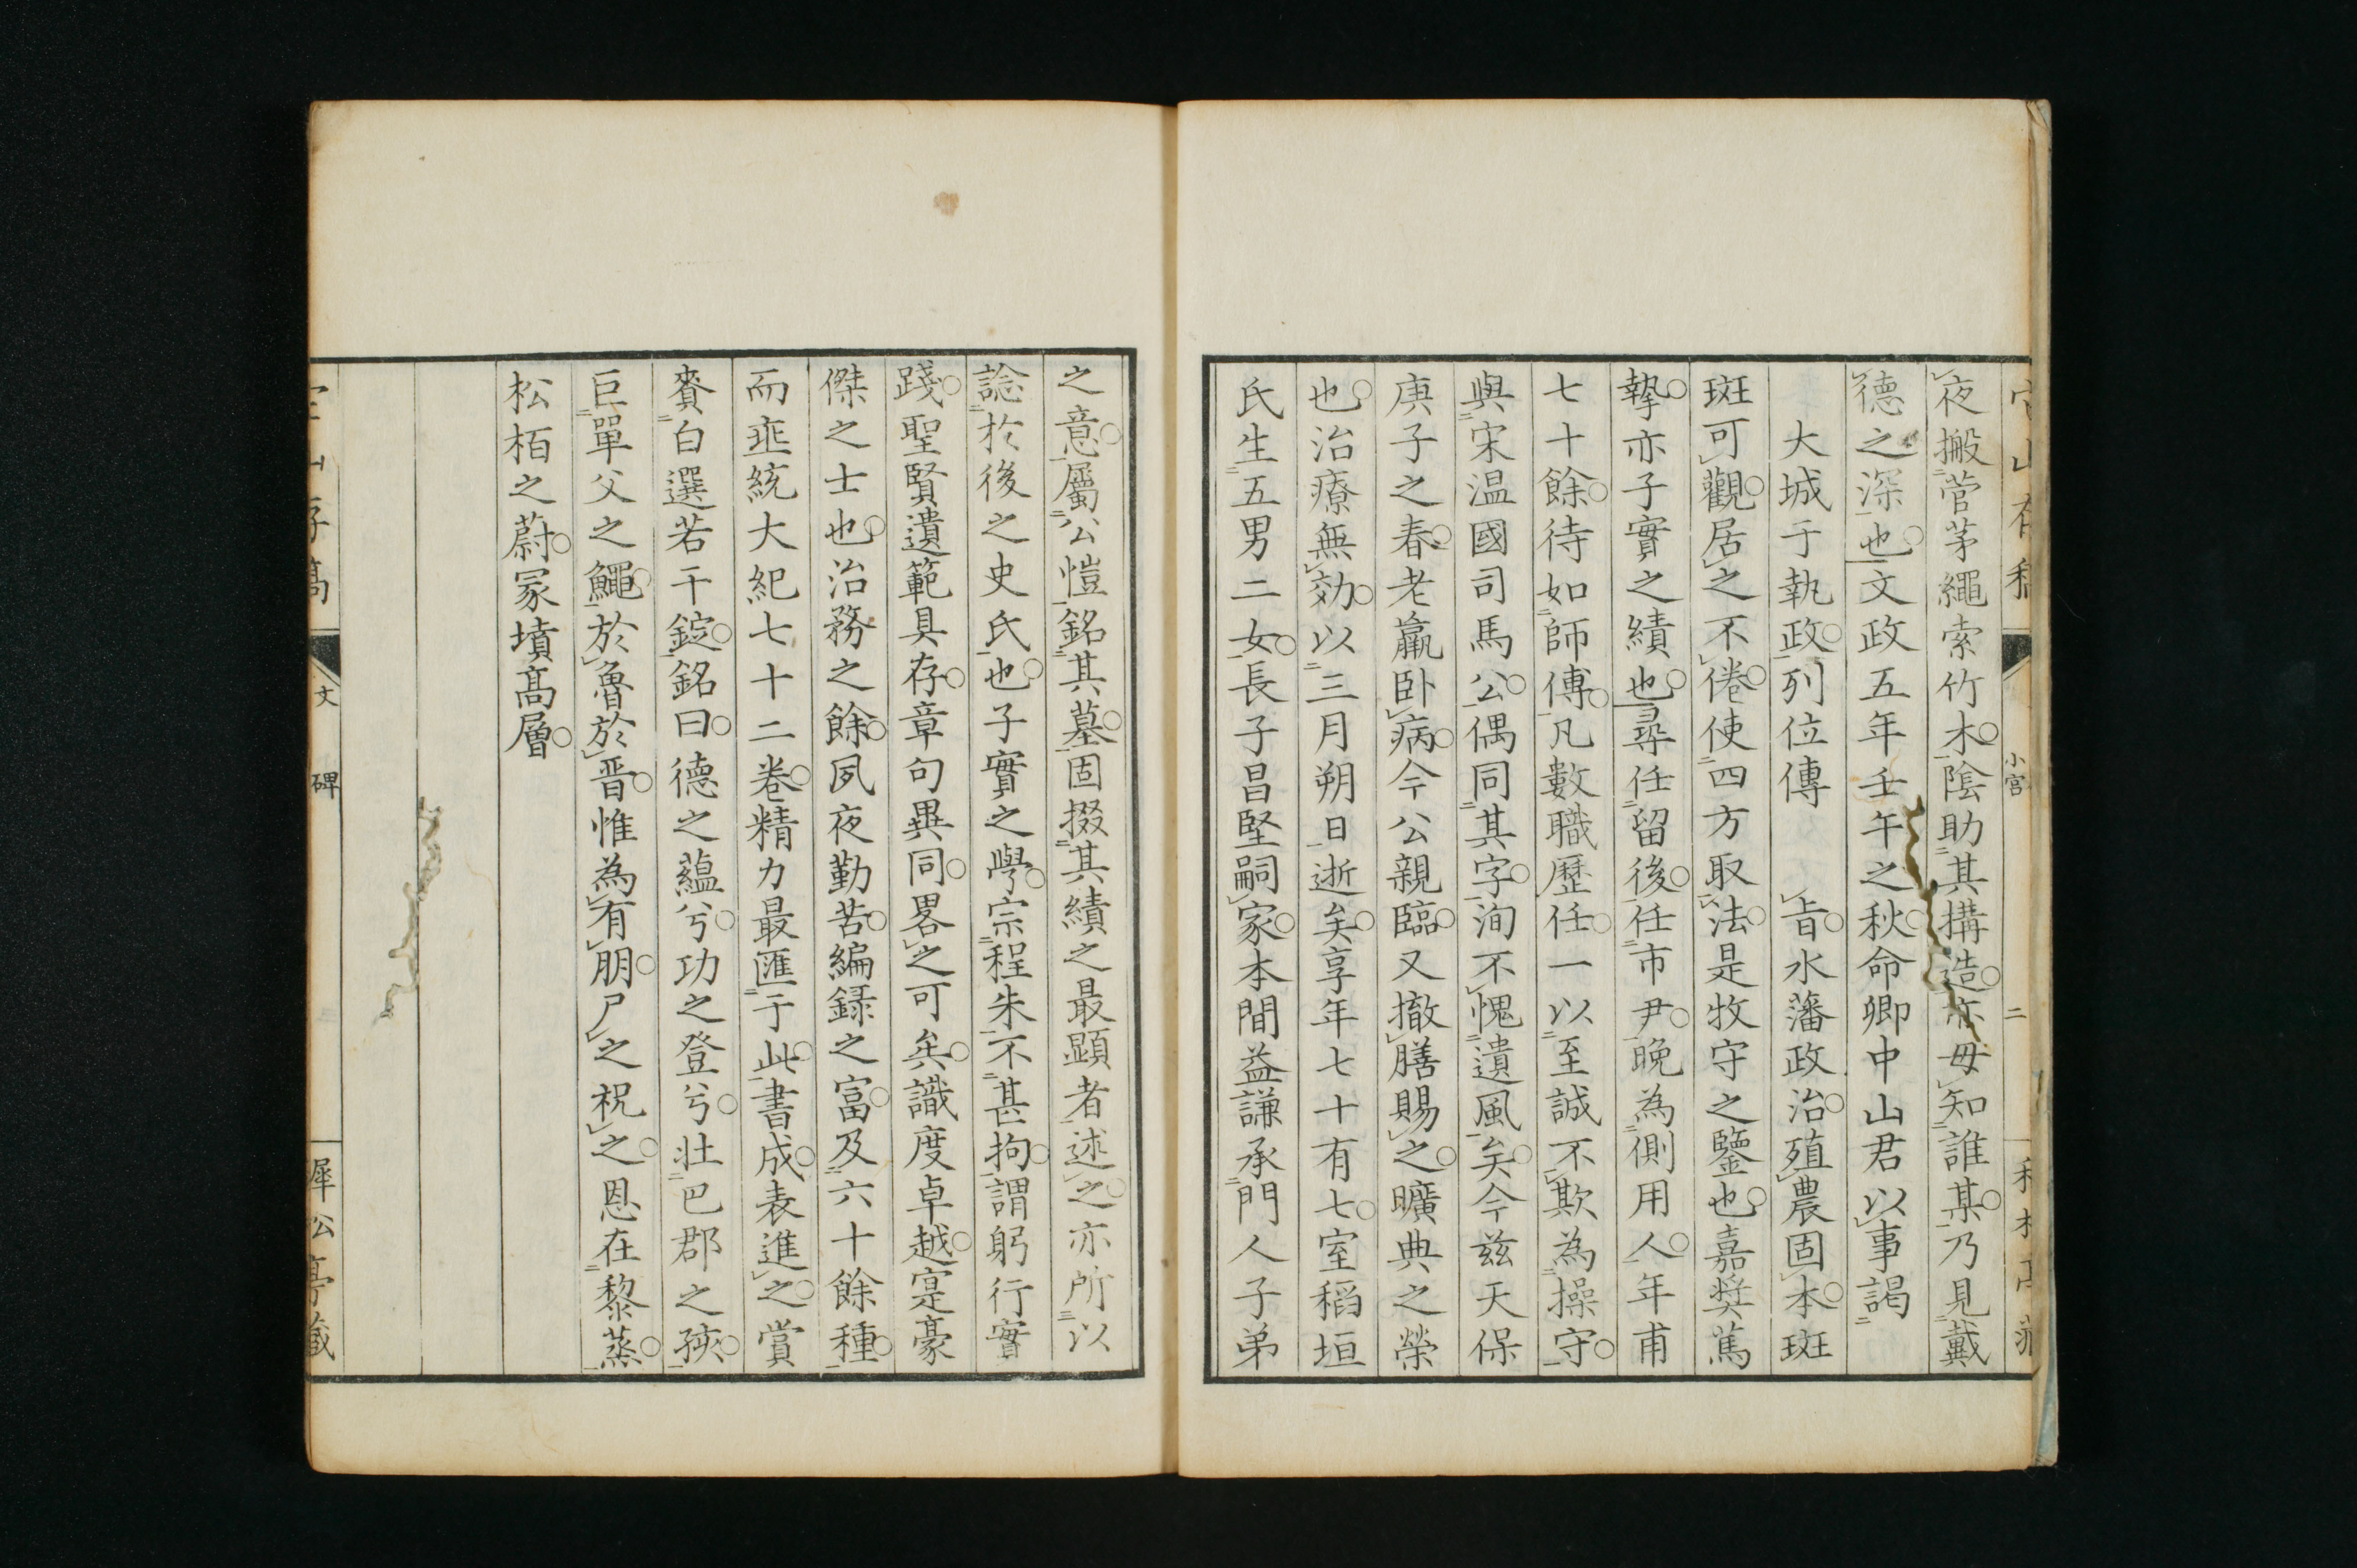 夜搬菅茅繩索竹木陰助其構造亦毋知誰某乃見戴
德之深也文政五年壬午之秋命卿中山君以事謁
大城于執政列位傳　旨水藩政治殖農固本斑
斑可觀居之不倦使四方取法是牧守之鑒也嘉奬篤
摯亦子實之績也尋任留後任市尹晩為側用人年甫
七十餘待如師傅凡數職歷任一以至誠不欺為操守
與宋温國司馬公偶同其字洵不愧遺風矣今兹天保
庚子之春老羸卧病今公親臨又撤膳賜之曠典之榮
也治療無効以三月朔日逝矣享年七十有七室稻垣
氏生五男二女長子昌堅嗣家本間益謙承門人子弟
之意屬公愷銘其墓固掇其績之最顯者述之亦所以
諗於後之史氏也子實之學宗程朱不甚拘謂躬行實
踐聖賢遺範具存章句異同畧之可矣識度卓越寔豪
傑之士也治務之餘夙夜勤苦編録之富及六十餘種
而垂統大紀七十二卷精力最匯于此書成表進之賞
賚白選若干錠銘曰德之蘊兮功之登兮壯巴郡之殯
巨單父之鱦於魯於晋惟為有朋尸之祝之恩在黎蒸
松栢之蔚冢墳高層
文　碑
小宮
二